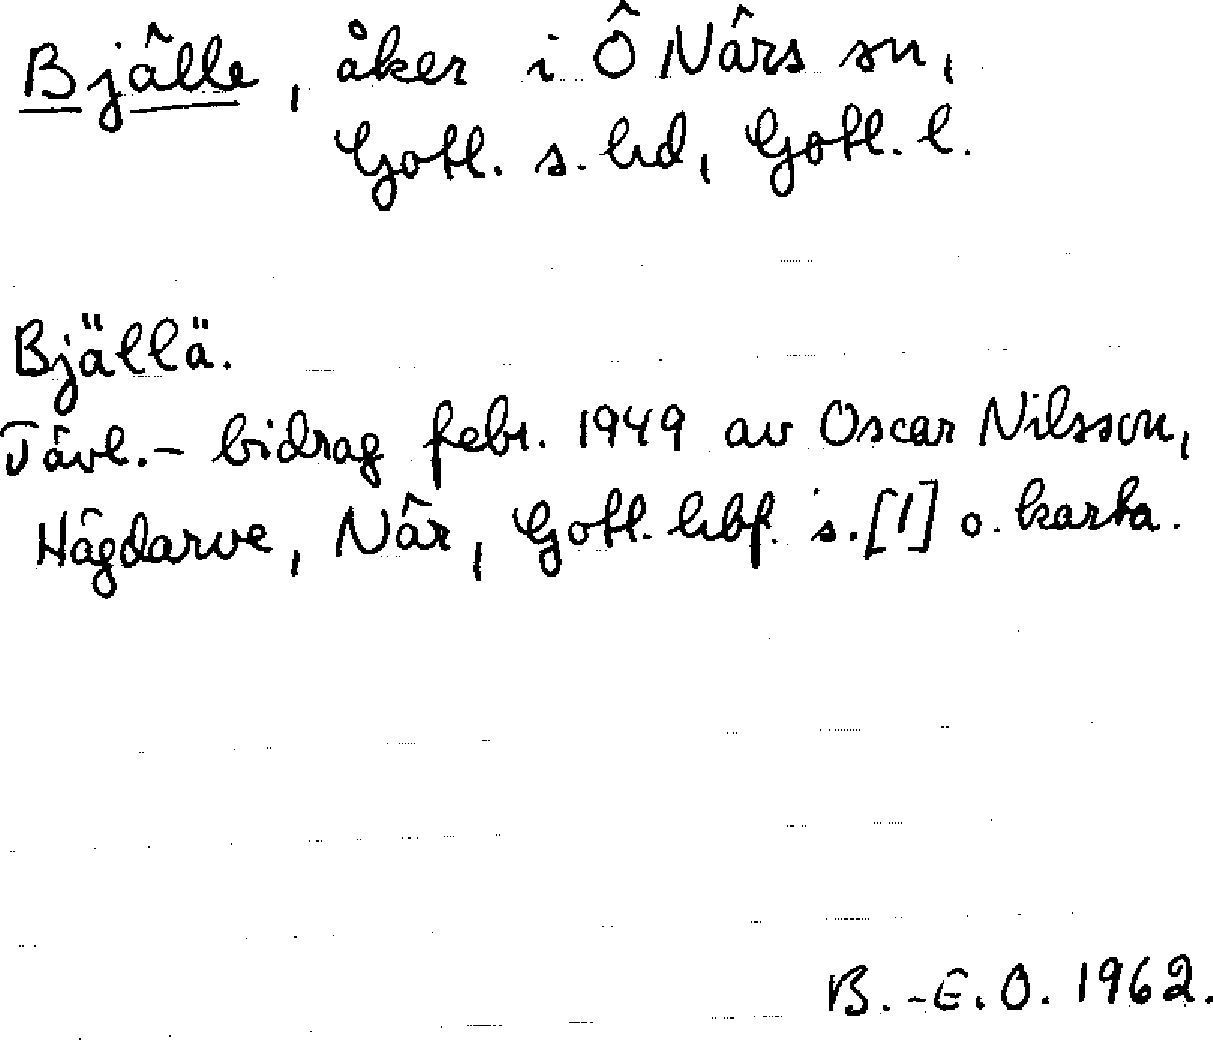 Bjälle, åker i Ö Närs sn,
Gotl. s. hd, Gotl. l.
Bjällä.
Tävl.- bidrag febr. 1949 av Oscar Nilsson,
Hägdarve, När, Gotl. hbf. s. [1] o. karta.
B.-E. O. 1962.